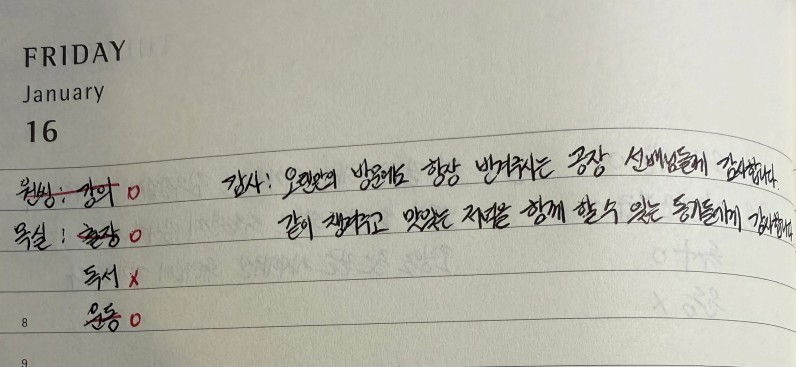 FRIDAY
January
16
원씽: 강의 O 감사: 오랜만의 방문에도 항상 반겨주시는 공장 선배님들께 감사합니다.
목실: 출장 O 같이 챙겨주고 맛있는 저녁을 함께 할 수 있는 동기들에게 감사합니다
독서 X
8 운동 O
9